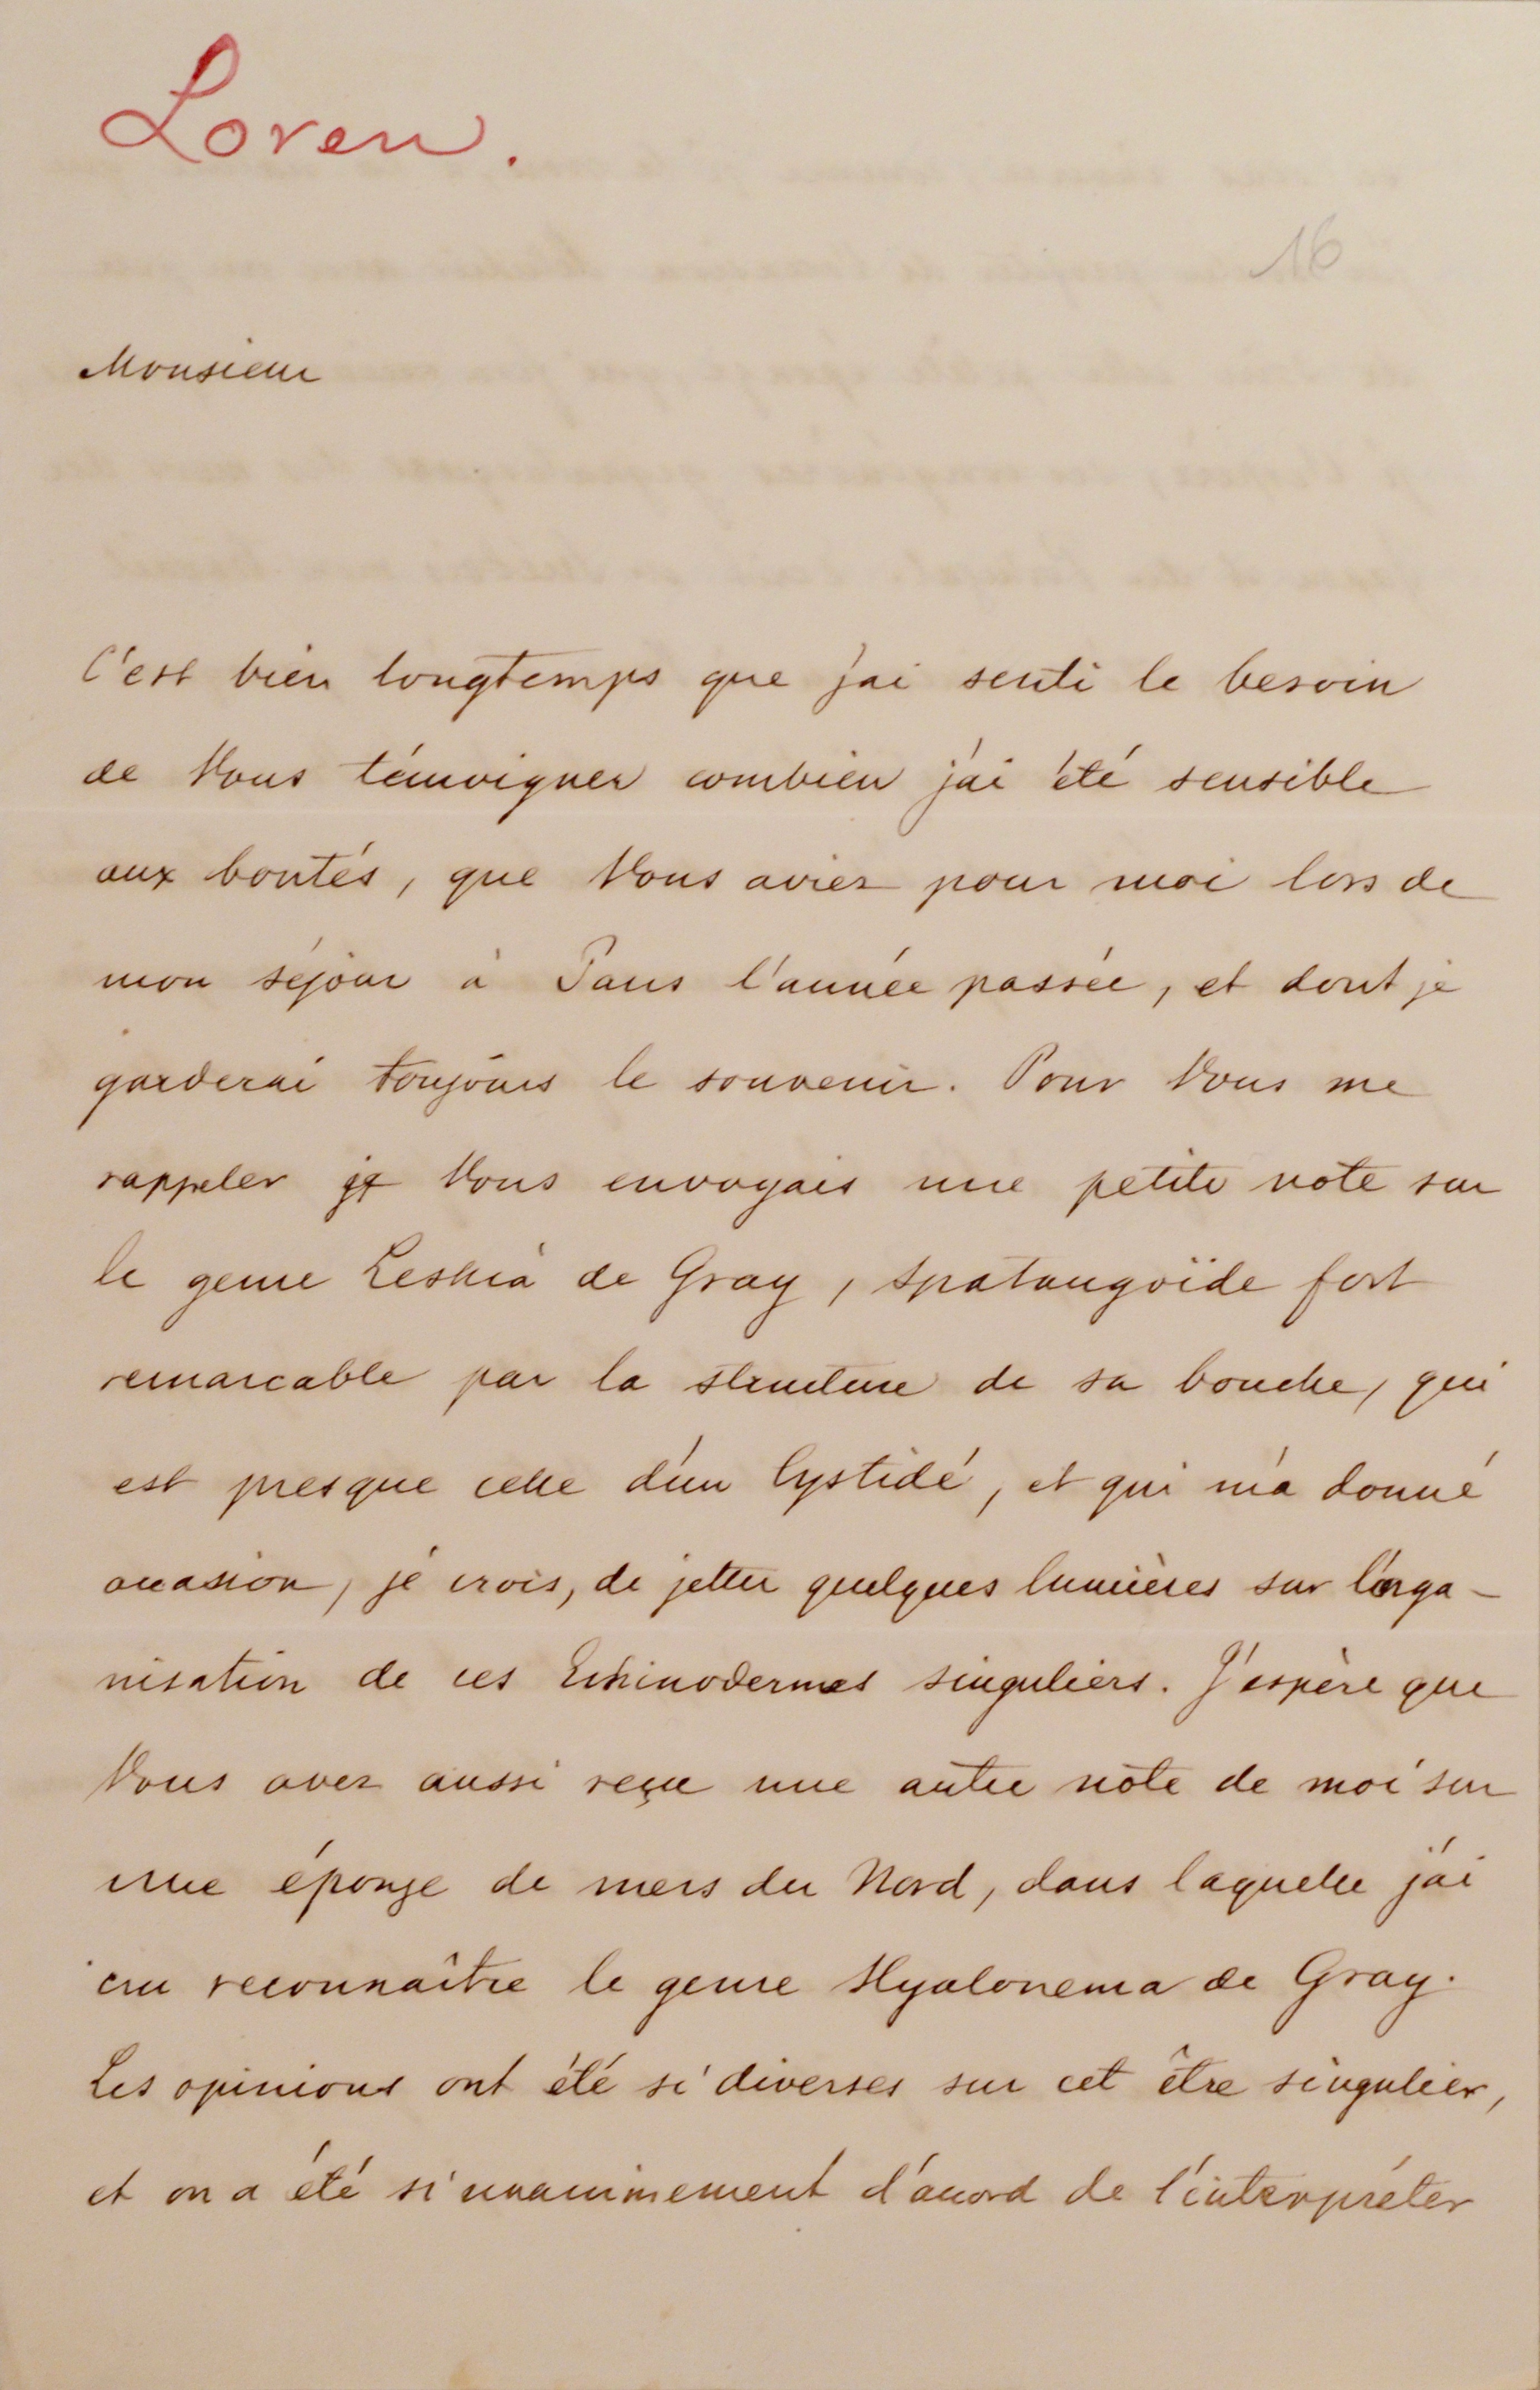 Loven.
16
Monsieur
C'est bien longtemps que j'ai senti le besoin
de Vous témoigner combien j'ai été sensible
aux bontés, que Vous aviez pour moi lors de
mon séjour à Paris l'année passée, et dont je
garderai toujours le souvenir. Pour Vous me
rappeler je Vous envoyais une petite note sur
le genre Leskia de Gray, spatangoïde fort
remarcable par la structure de sa bouche, qui
est presque celle d'un Cystidé, et qui m'a donné
occasion, je crois, de jetter quelques lumières sur l'orga-
nisation de ces Echinodermes singuliers. J'espère que
Vous avez aussi reçue une autre note de moi sur
une éponge de mers du Nord, dans laquelle j'ai
cru reconnaître le genre Hyalonema de Gray.
Les opinions ont été si diverses sur cet être singulier,
et on a été si unanimement d'accord de l'interpréter